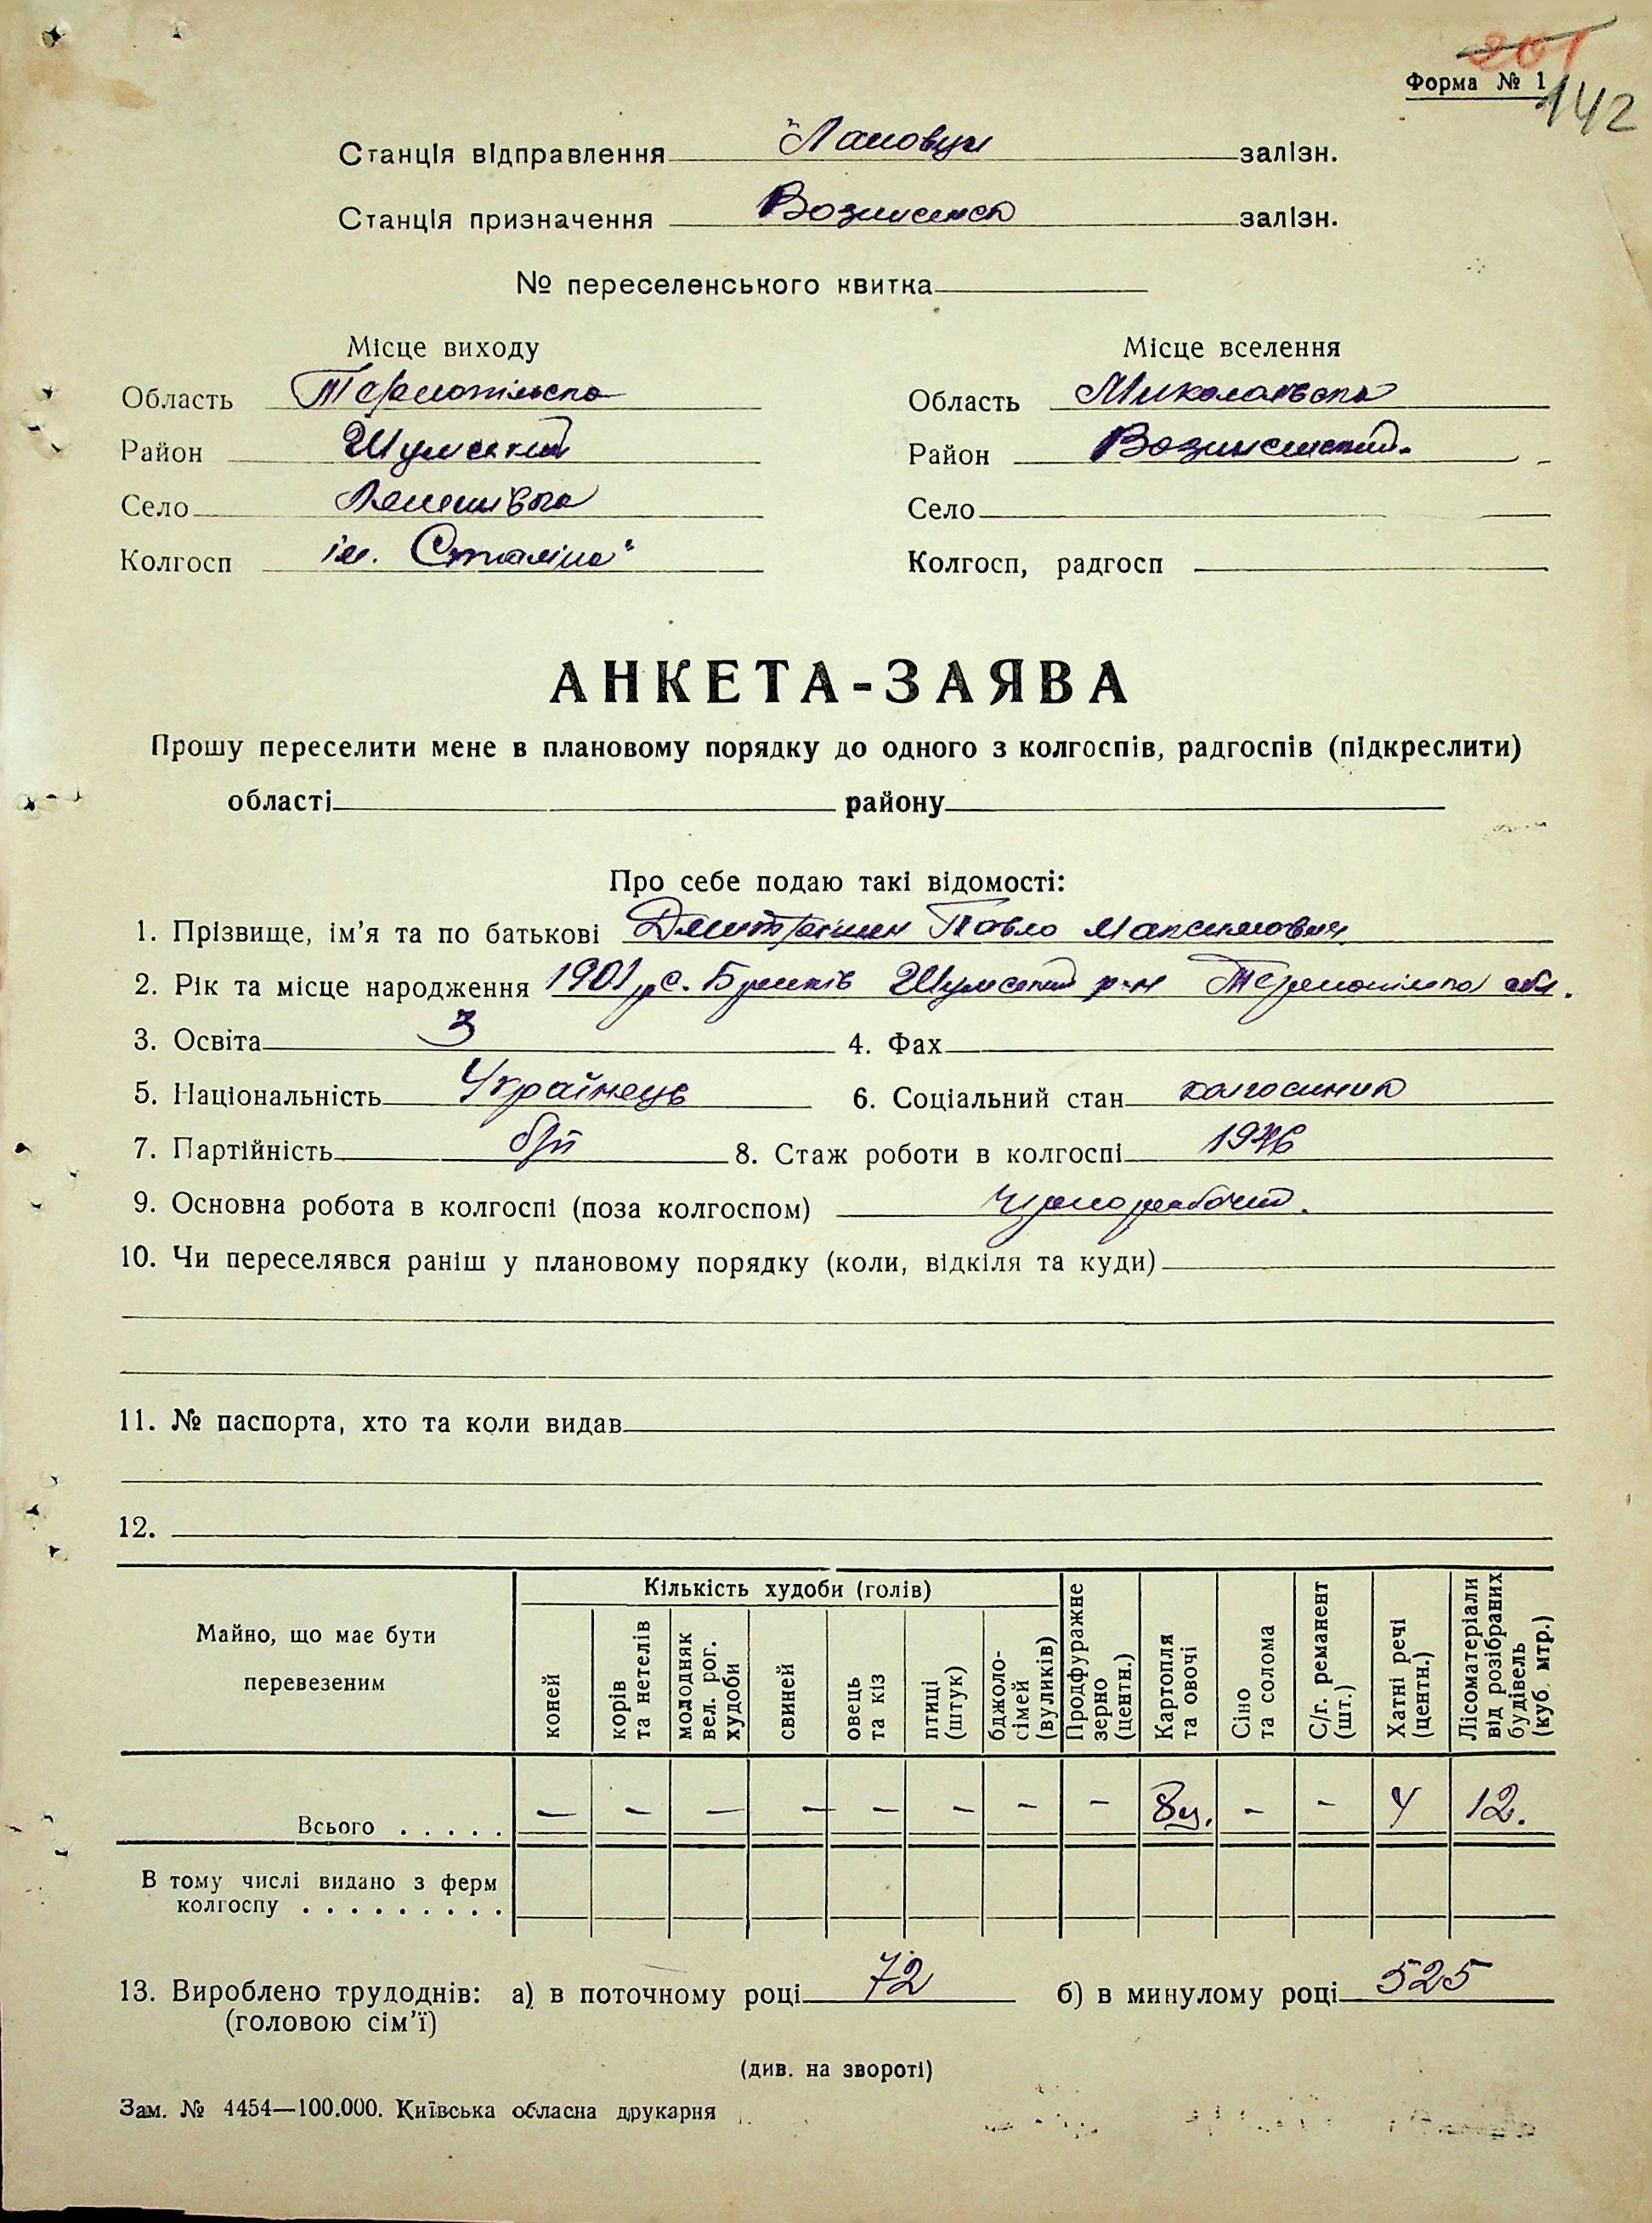 201
Форма № 1
142
Станція відправлення "Лановци залізн.
Станція призначення Вознисенск залізн.
№ переселенського квитка
Місце виходу
Місце вселення
Область Тернопільска
Область Миколаївска
Район Шумский
Район Вознисенский.
Село
Село
Колгосп ім. Сталіна"
Колгосп, радгосп
АНКЕТА-ЗАЯВА
Прошу переселити мене в плановому порядку до одного з колгоспів, радгоспів (підкреслити)
області району
Про себе подаю такі відомості:
1. Прізвище, ім'я та по батькові Дмитришин Павло Максимович
2. Рік та місце народження 1901 р с. Бриків Шумский р-н Тернопільска обл.
3. Освіта 3 4. Фах
5. Національність Українець 6. Соціальний стан колгоспник
7. Партійність б/п 8. Стаж роботи в колгоспі 1946
9. Основна робота в колгоспі (поза колгоспом) чорнорабочий.
10. Чи переселявся раніш у плановому порядку (коли, відкіля та куди)
11. № паспорта, хто та коли видав
12.
Майно, що має бути перевезеним
Кількість худоби (голів)
коней
корів та нетелів
молодняк вел. рог. худоби
свиней
овець та кіз
птиці (штук)
бджоло-сімей (вуликів)
Продфуражне зерно (центн.)
Картопля та овочі
Сіно та солома
С/г. реманент (шт.)
Хатні речі (центн.)
Лісоматеріали від розібраних будівель (куб. мтр.)
Всього . . . . . — — — — — — — — 8ц. - - 4 12.
В тому числі видано з ферм
колгоспу . . . . . . . . .
13. Вироблено трудоднів: а) в поточному році 72 б) в минулому році 525
(головою сім'ї)
(див. на звороті)
Зам. № 4454—100.000. Київська обласна друкарня